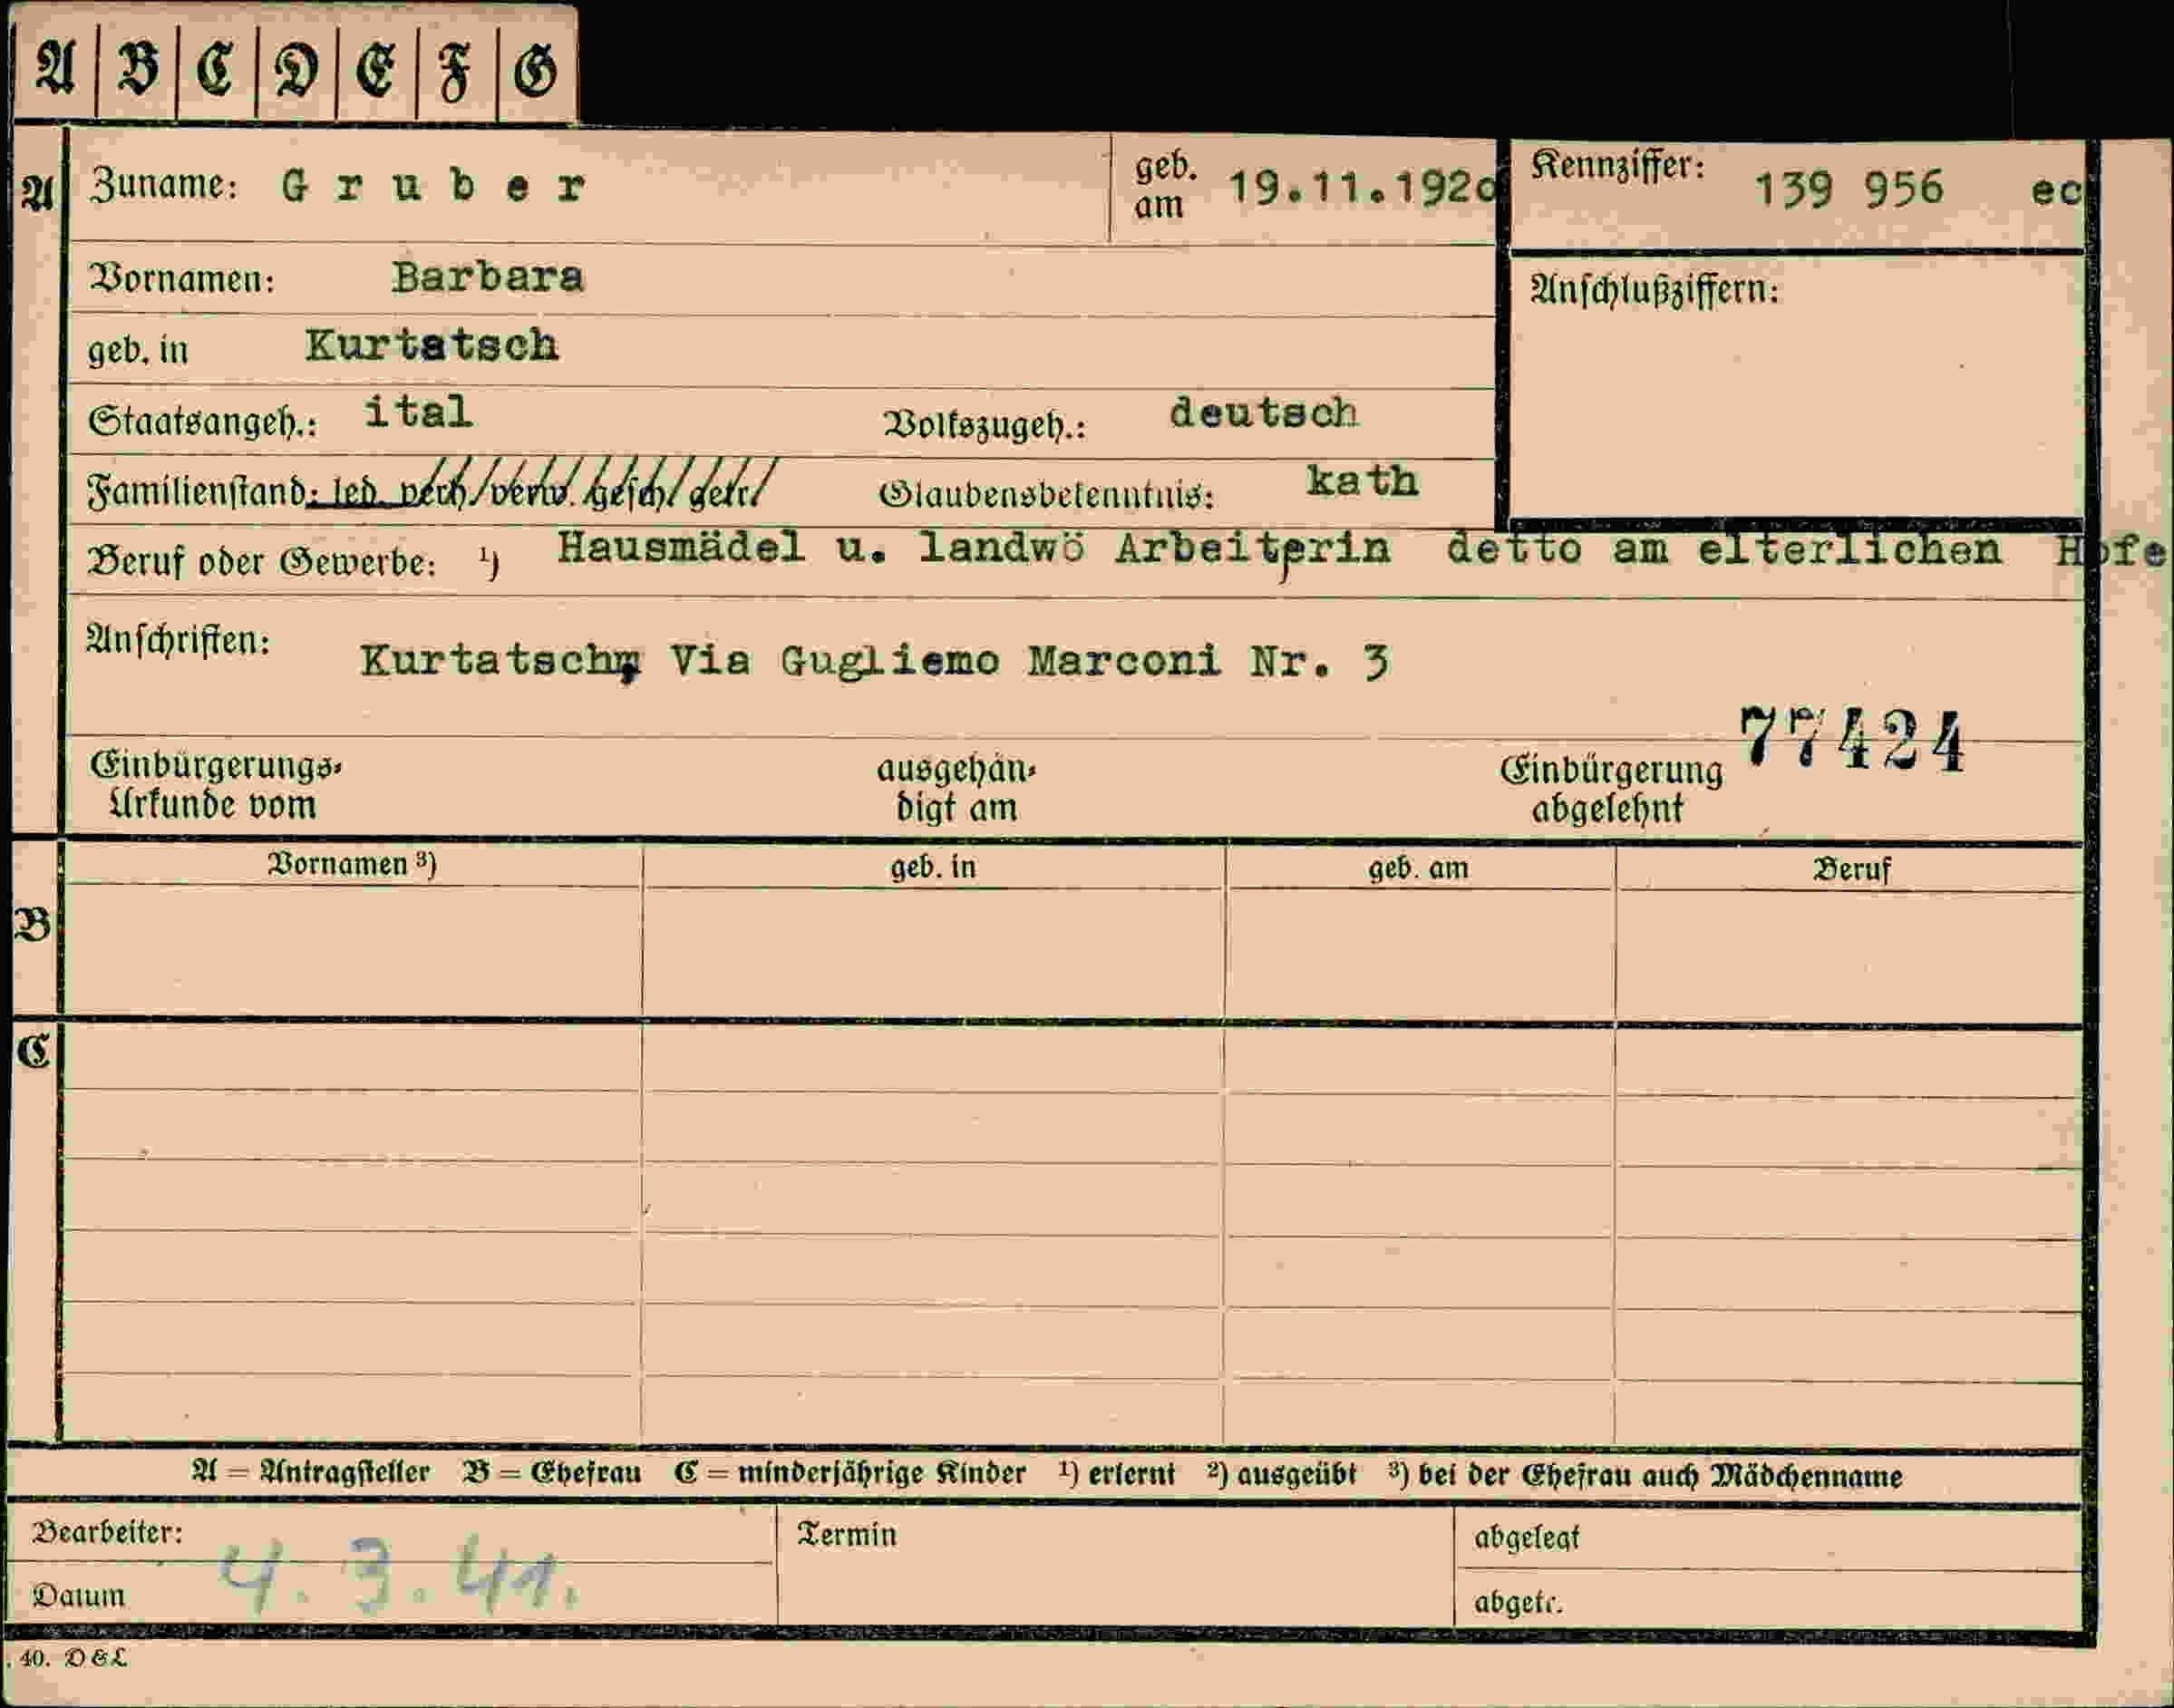 A B C D E F G
A Zuname: Gruber geb. am 19.11.192o Kennziffer: 139 956 ec
Vornamen: Barbara Anschlußziffern:
geb. in Kurtatsch
Staatsangeh.: ital Volkszugeh.: deutsch
Familienstand: led. verh. verw. gesch. getr. Glaubensbekenntnis: kath
Beruf oder Gewerbe: ¹) Hausmädel u. landwö Arbeiterin detto am elterlichen Hofe
Anschriften: Kurtatsch, Via Gugliemo Marconi Nr. 3
77424
Einbürgerungs- ausgehän- Einbürgerung
Urkunde vom digt am abgelehnt
Vornamen ³) geb. in geb. am Beruf
B
C
A = Antragsteller B = Ehefrau C = minderjährige Kinder ¹) erlernt ²) ausgeübt ³) bei der Ehefrau auch Mädchenname
Bearbeiter: Termin abgelegt
Datum 4.3.41. abgetr.
. 40. D & L